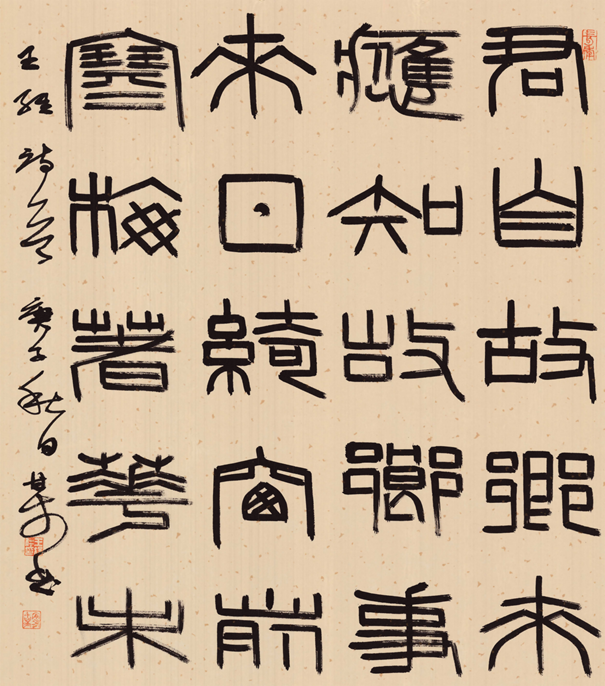 君自故鄉來
應知故鄉事
來日綺窗前
寒梅著華未
王維詩一首 庚子秋日